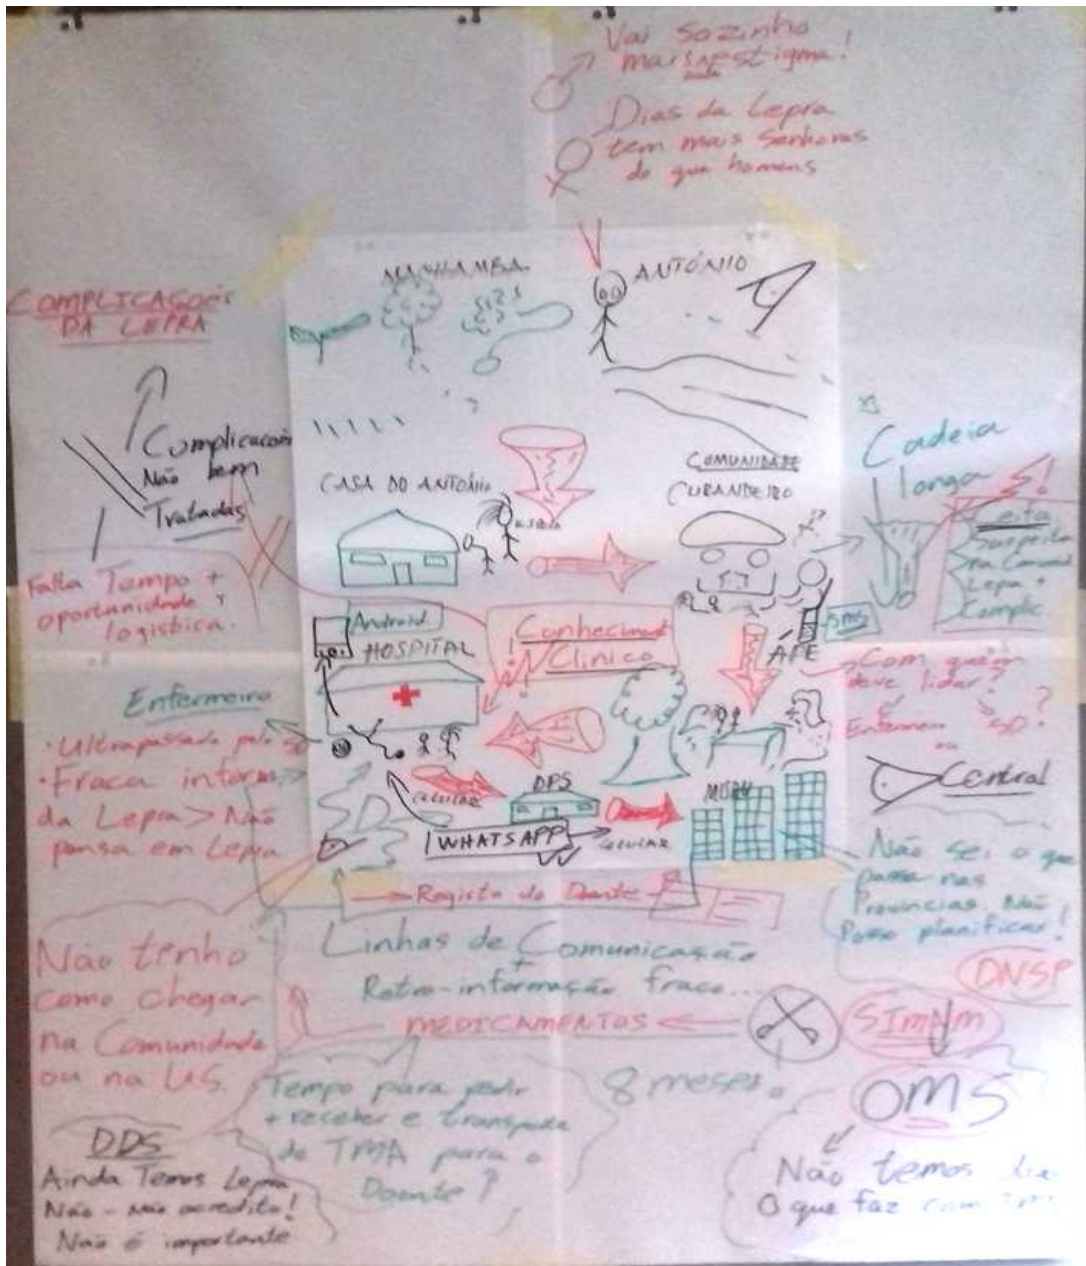 Vai sozinho
mais estigma!
Dias da Lepra
tem mais senhoras
do que homens
ANTÓNIO
COMPLICAÇOES
DA LEPRA
Complicacões
Não bem
Tratadas
Falta Tempo +
oportunidade
logistica.
CASA DO ANTÓNIO
COMUNIDADE
CURANDEIRO
Cadeia
longa
Suspeita
na Comunid
Lepra +
Complic.
Android
HOSPITAL
Conheciment
Clinico
SMS
APE
Com quem
deve lidar?
Enfermeiro
ou
SD?
Enfermeiro
• Ultrapassado pelo SD
• Fraca inform.
da Lepra > Não
pensa em Lepra
CELULAR
DPS
WHATSAPP
CELULAR
MISAU
Central
Não sei o que
passa nas
Provincias. Não
Posso planificar!
DNSP
Registo do Doente
Linhas de Comunicação
+
Retro-informação fraco...
MEDICAMENTOS
SIMAM
Não tenho
como chegar
na Comunidade
ou na US.
Tempo para pedir
+ receber e transporte
de TMA para o
Doente?
8 meses.
OMS
Não temos
O que faz com
DDS
Ainda Temos Lepra
Não - não acredito!
Não é importante